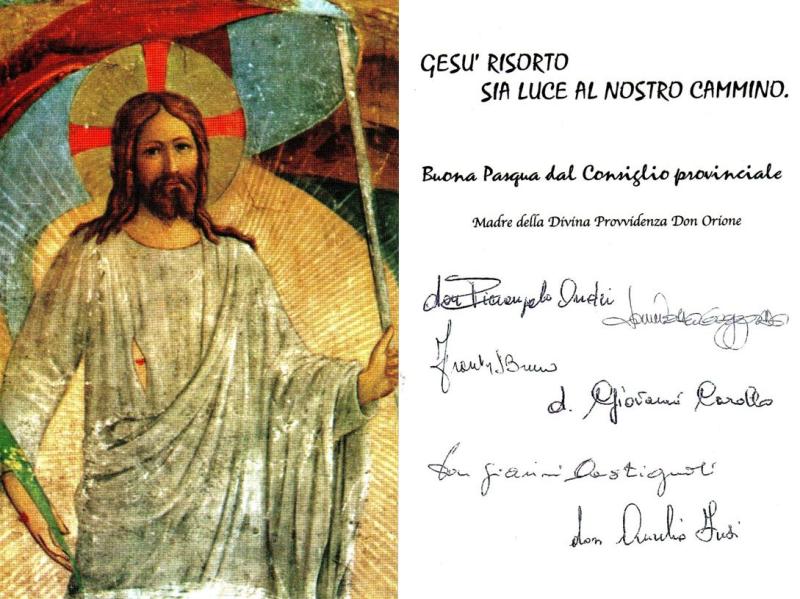 GESU' RISORTO
SIA LUCE AL NOSTRO CAMMINO.
Buona Pasqua dal Consiglio provinciale
Madre della Divina Provvidenza Don Orione
don Pierangelo Ondei
don
Bruno
d. Giovanni Carollo
don Gianni Castignoli
don Aurelio Fusi